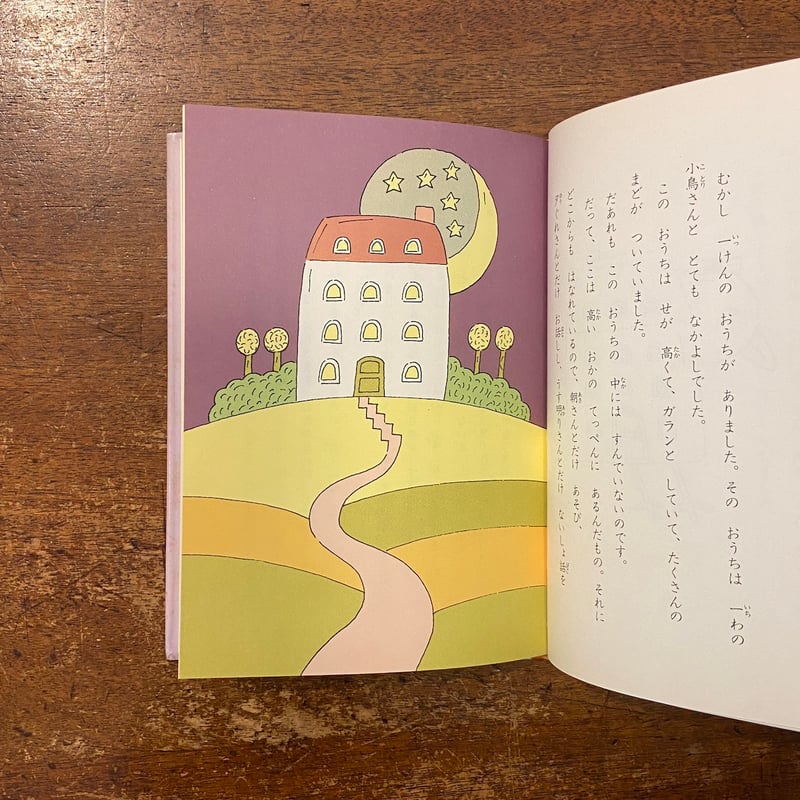 むかし 一けんの おうちが ありました。その おうちは 一わの
小鳥さんと とても なかよしでした。
この おうちは せが 高くて、ガランと していて、たくさんの
まどが ついていました。
だあれも この おうちの 中には すんでいないのです。
だって、ここは 高い おかの てっぺんに あるんだもの。それに
どこからも はなれているので、朝さんとだけ あそび、
夕ぐれさんとだけ お話しし、うす明りさんとだけ ないしょ話を